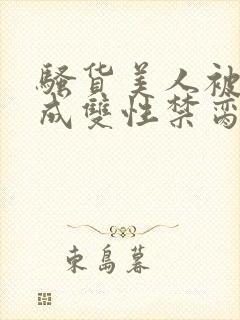 騷貨美人被
成雙性禁臠
東島暮